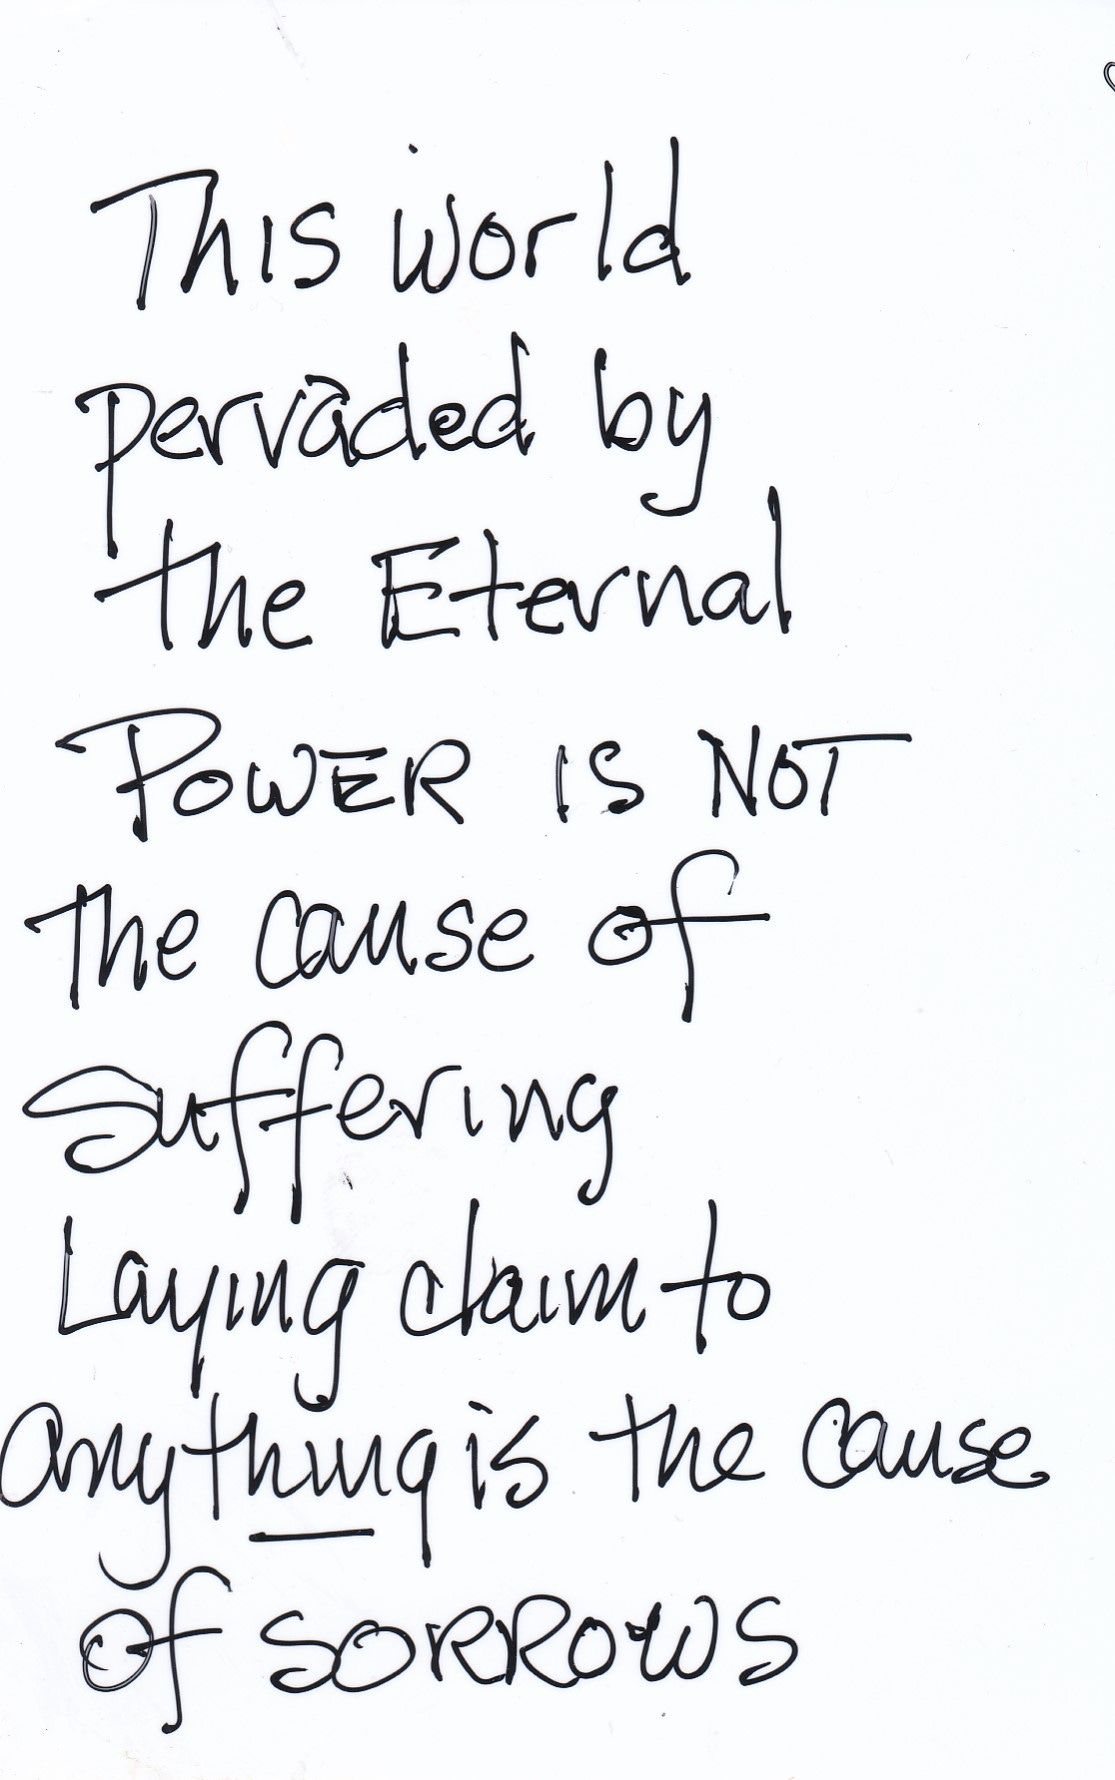 This world
pervaded by
the Eternal
POWER IS NOT
the cause of
Suffering
Laying claim to
anything is the cause
of SORROWS